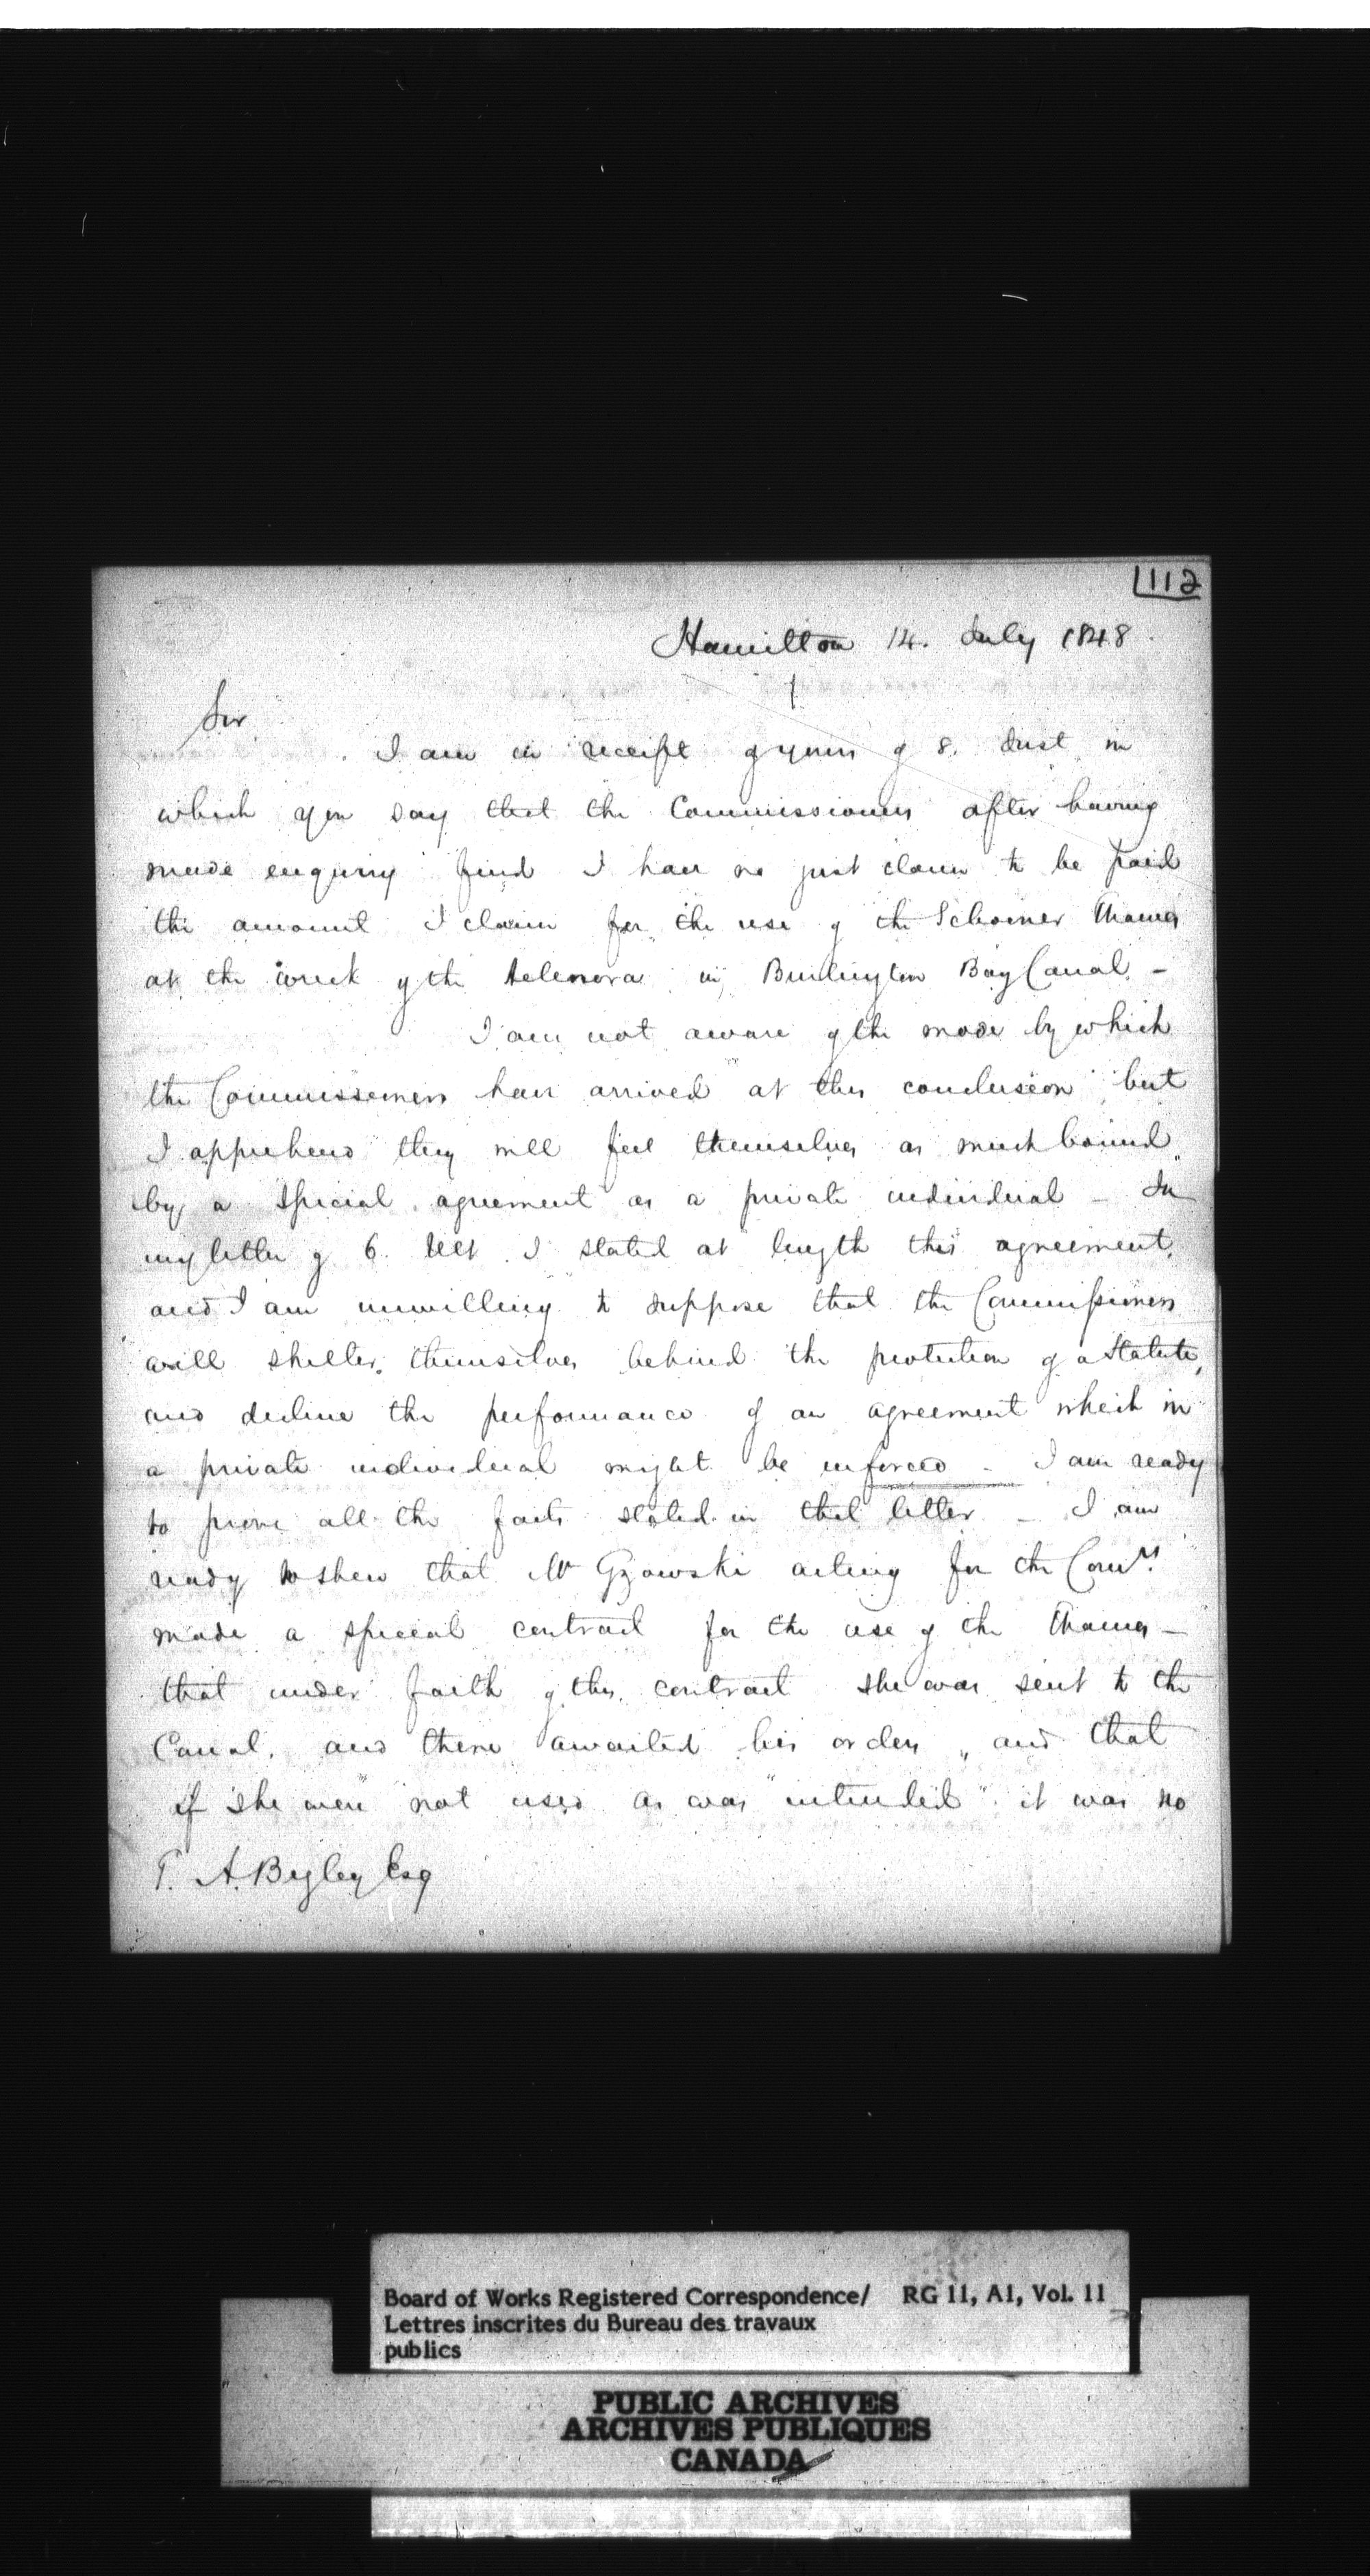 112
Hamilton 14. July 1848
Sir
I am in receipt of yours of 8. Inst in
which you say that the Commissioners after having
made enquiry find I have no just claim to be paid
the amount I claim for the use of the Schooner Thames
at the wreck of the Helenora in Burlington Bay Canal –
I am not aware of the mode by which
the Commissioners have arrived at this conclusion but
I apprehend they will feel themselves as much bound
by a special agreement as a private individual – In
my letter of 6. Ult I stated at length this agreement
and I am unwilling to suppose that the Commissioners
will shelter themselves behind the protection of a Statute,
and decline the performance of an agreement which in
a private individual might be enforced – I am ready
to prove all the facts stated in that letter – I am
ready to shew that Mr Gzowski acting for the Comrs.
made a special contract for the use of the Thames –
that under faith of this contract she was sent to the
Canal, and there awaited his orders, and that
if she were not used as was "intended" it was no
T. A. Begley Esq
Board of Works Registered Correspondence/ RG 11, A1, Vol. 11
Lettres inscrites du Bureau des travaux
publics
PUBLIC ARCHIVES
ARCHIVES PUBLIQUES
CANADA